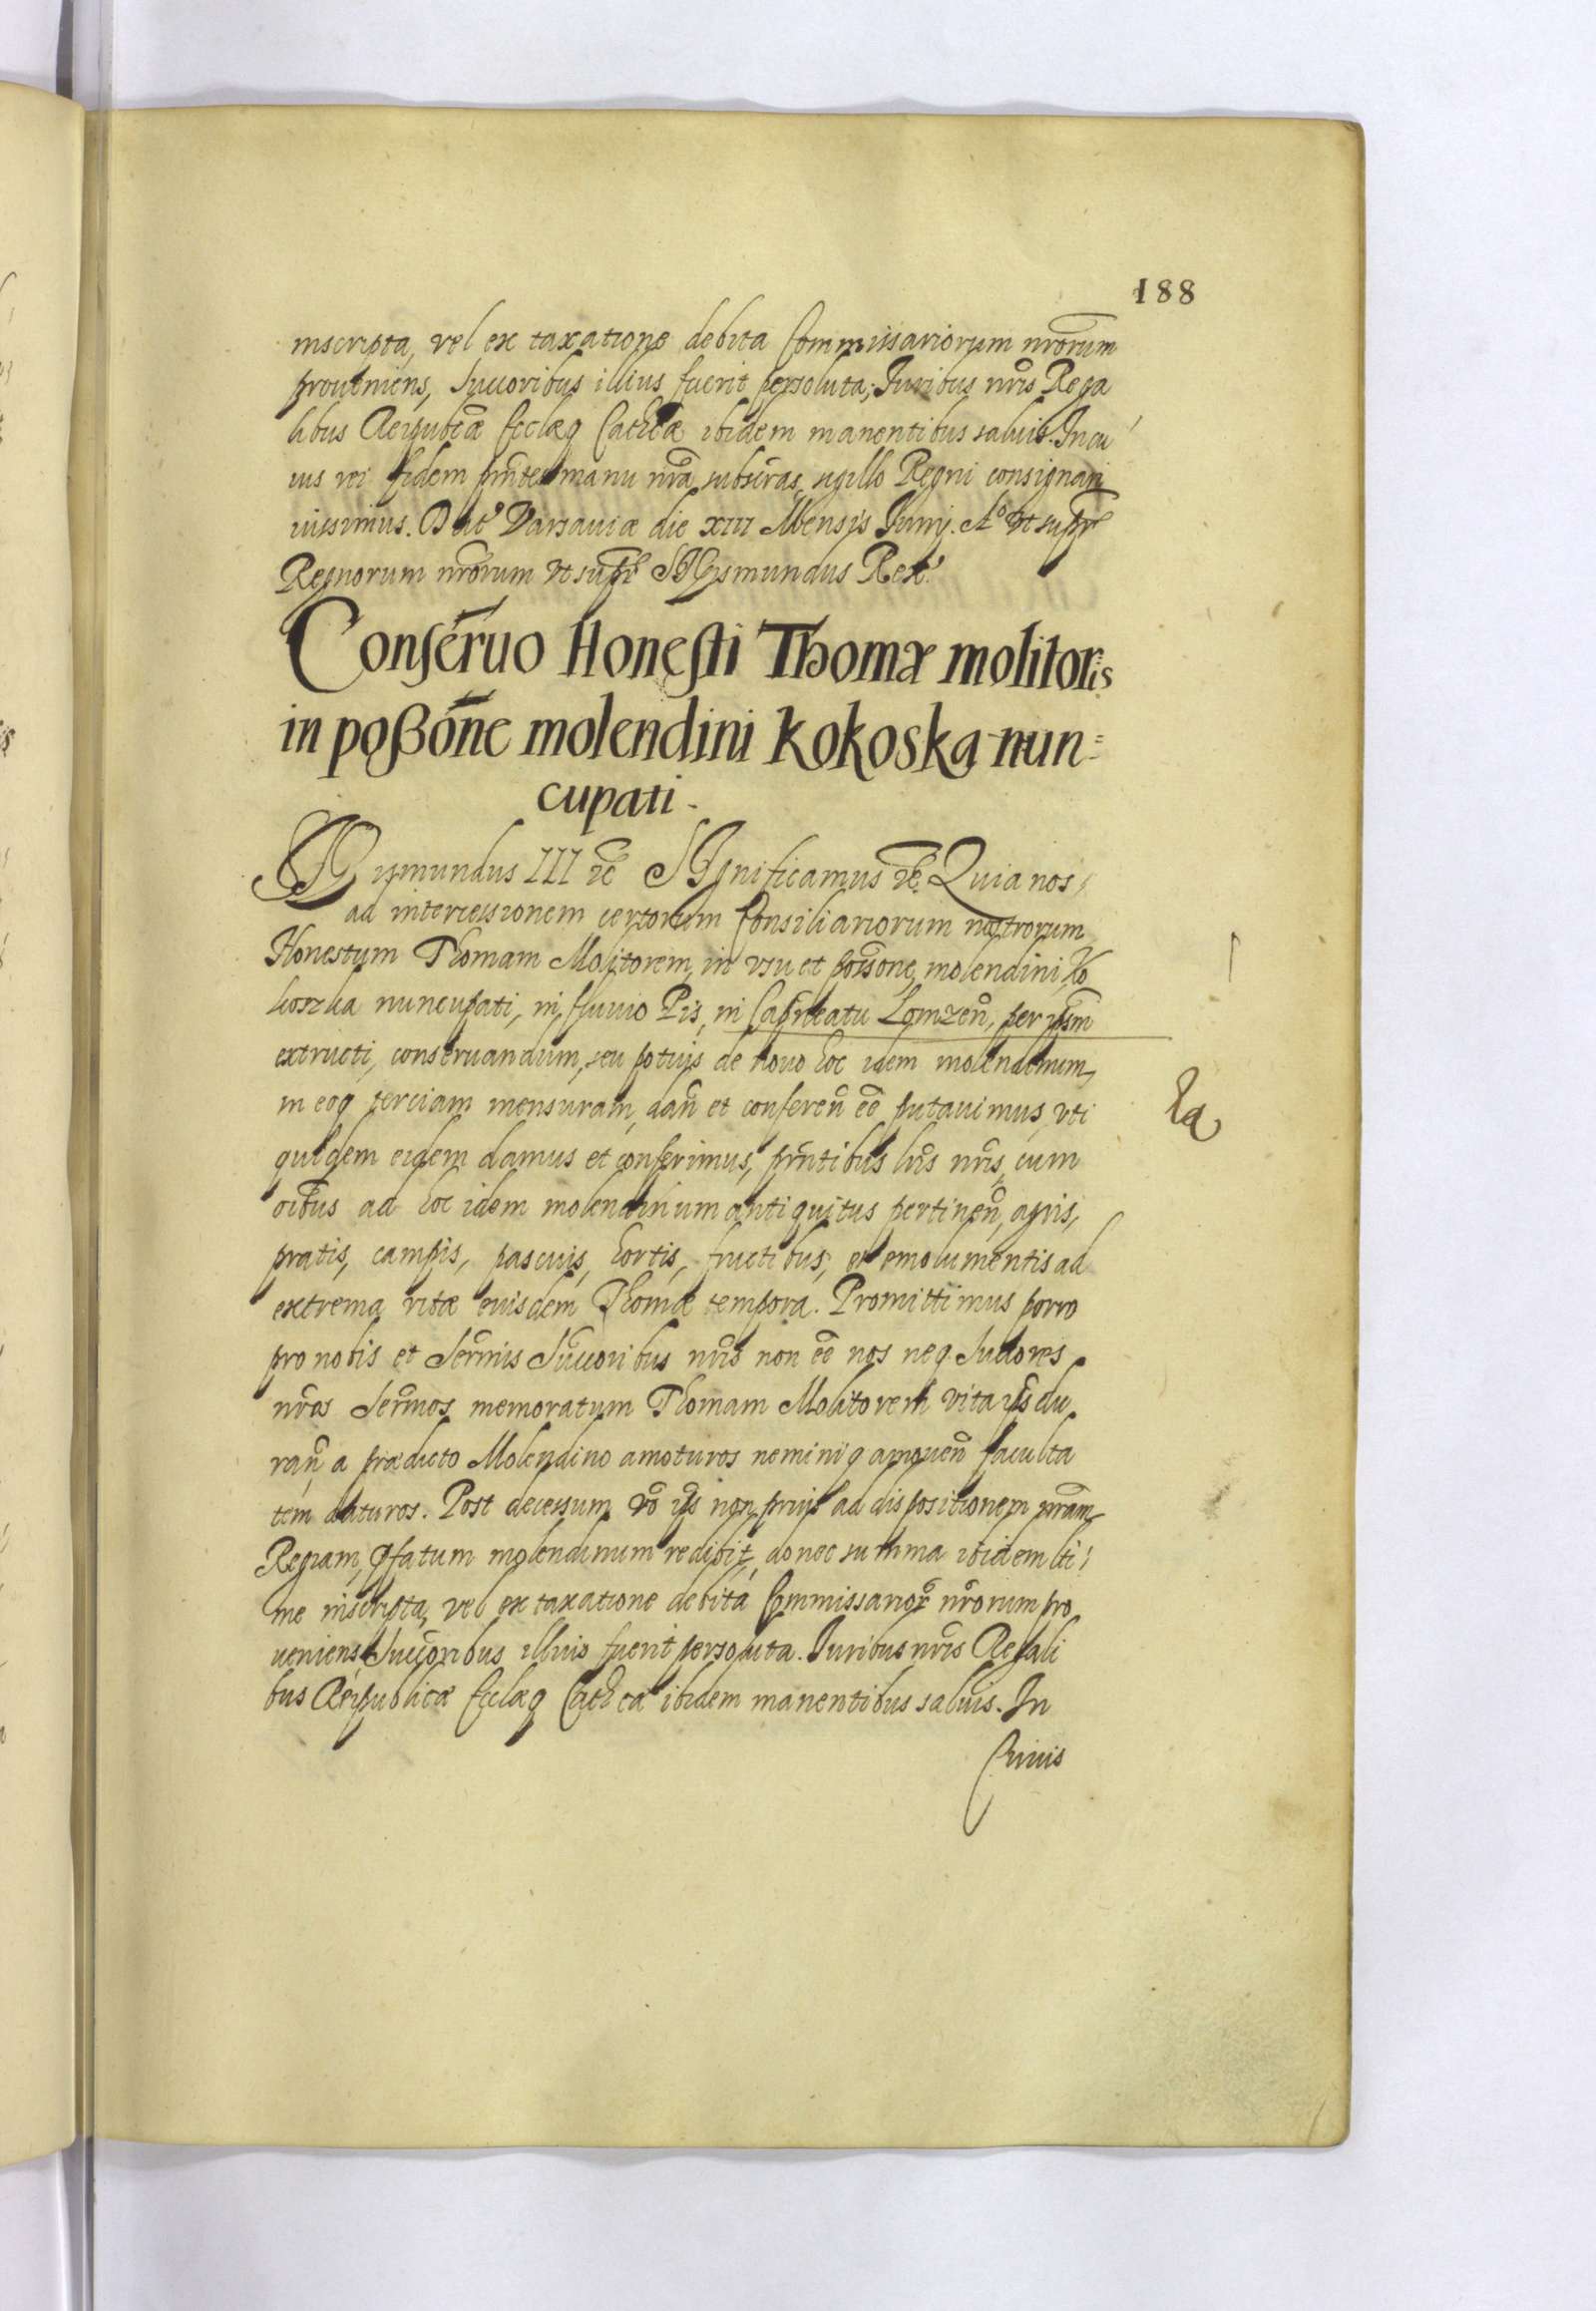 188
inscripta, vel ex taxatione debita Commissariorum nrorum
proueniens, Succoribus illius fuerit persoluta; Iuribus nris Rega
libus Reipubcæ Ecclæq Cathcæ ibidem manentibus saluis. In cu
ius rei fidem pntes manu nra subscras, sigillo Regni consignari
iussimus. Dat Varsauiæ die XIII Mensis Iunij. Aº vt supr
Regnorum nrorum vt supr SIGismundus Rex
Conseruo Honesti Thomæ molitoris
in poßone molendini Kokoska nun=
cupati.
SIGismundus III rc SIGnificamus rc. Quia nos
ad intercessionem certorum Consiliariorum nostrorum
Honestum Thomam Molitorem, in vsu et possone, molendini, Ko
koszka nuncupati, in fluuio Pis, in Capneatu Lomzen, per ipsm
extructi, conseruandum, seu potius de nouo hoc idem molendinum,
in eoq terciam mensuram, dan et conferen ee putauimus, vti
quidem eidem damus et conferimus, pntibus lris nris, cum
oibus ad hoc idem molendinum antiquitus pertinen, agris,
pratis, campis, pascuis, hortis, fructibus, et emolumentis ad
extrema vitæ eiusdem Thomæ tempora. Promittimus porro
pro nobis et Sermis Succoribus nris non ee nos neq Succores
nros Sermos memoratum Thomam Molitorem vita ips du
ran a prædicto Molendino amoturos neminiq amouen faculta
tem daturos. Post decessum vo ips non prius ad dispositionem nram
Regiam, pfatum molendinum redibit, donec summa ibidem lti
me inscripta, vel ex taxatione debita Commissarior nrorum pro
ueniens Succoribus illius fuerit persoluta. Iuribus nris Regali
bus Reipublicæ Ecclæq Cathcæ ibidem manentibus saluis. In
Cuius